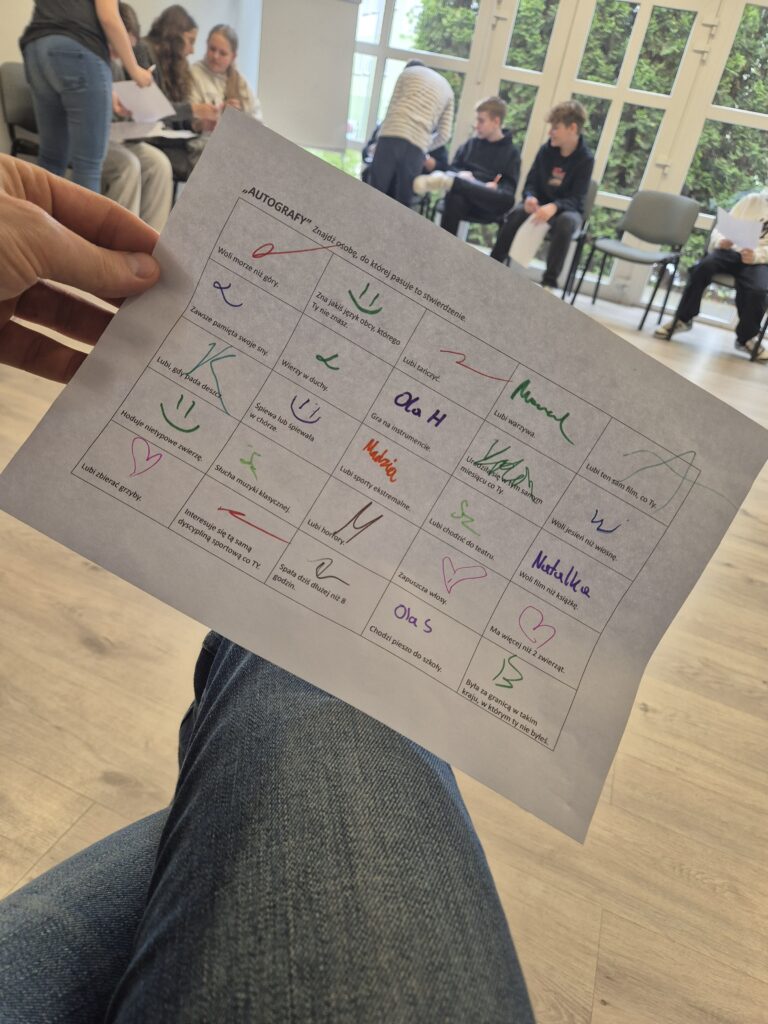 „AUTOGRAFY” Znajdź osobę, do której pasuje to stwierdzenie.
Woli morze niż góry.
Zna jakiś język obcy, którego
Ty nie znasz.
Lubi tańczyć.
Lubi warzywa.
A
Lubi ten sam film, co Ty.
Zawsze pamięta swoje sny.
Wierzy w duchy.
Ola H
Gra na instrumencie.
się w tym samym
miesiącu co Ty.
Woli jesień niż wiosnę.
K
Lubi, gdy pada deszcz.
Śpiewa lub śpiewała
w chórze.
Madzia
Lubi sporty ekstremalne.
Sz
Lubi chodzić do teatru.
Natalka
Woli film niż książkę.
Hoduje nietypowe zwierzę.
Słucha muzyki klasycznej.
M
Lubi horrory.
Zapuszcza włosy.
Ma więcej niż 2 zwierząt.
Lubi zbierać grzyby.
Interesuje się tą samą
dyscypliną sportową co TY.
Spała dziś dłużej niż 8
godzin.
Ola S
Chodzi pieszo do szkoły.
B
Była za granicą w takim
kraju, w którym ty nie byłeś.